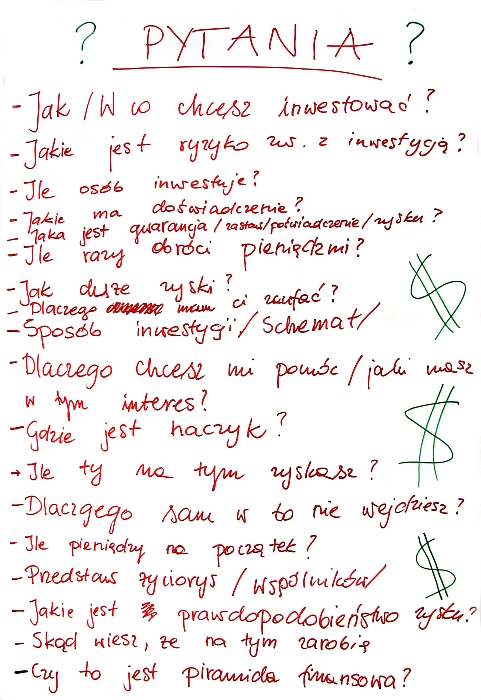 ? PYTANIA ?
- Jak / W co chcesz inwestować?
- Jakie jest ryzyko zw. z inwestycją?
- Ile osób inwestuje?
- Jakie ma doświadczenie?
- Jaka jest gwarancja / zastaw / poświadczenie / zysku?
- Ile razy obróci pieniędzmi?
- Jak duże zyski?
- Dlaczego mam ci zaufać?
- Sposób inwestycji / Schemat /
- Dlaczego chcesz mi pomóc / jaki masz
w tym interes?
- Gdzie jest haczyk?
- Ile ty na tym zyskasz?
- Dlaczgego sam w to nie wejdziesz?
- Ile pieniędzy na początek?
- Przedstaw życiorys / wspólników /
- Jakie jest prawdopodobieństwo zysku?
- Skąd wiesz, że na tym zarobię
- Czy to jest piramida finansowa?
$
$
$